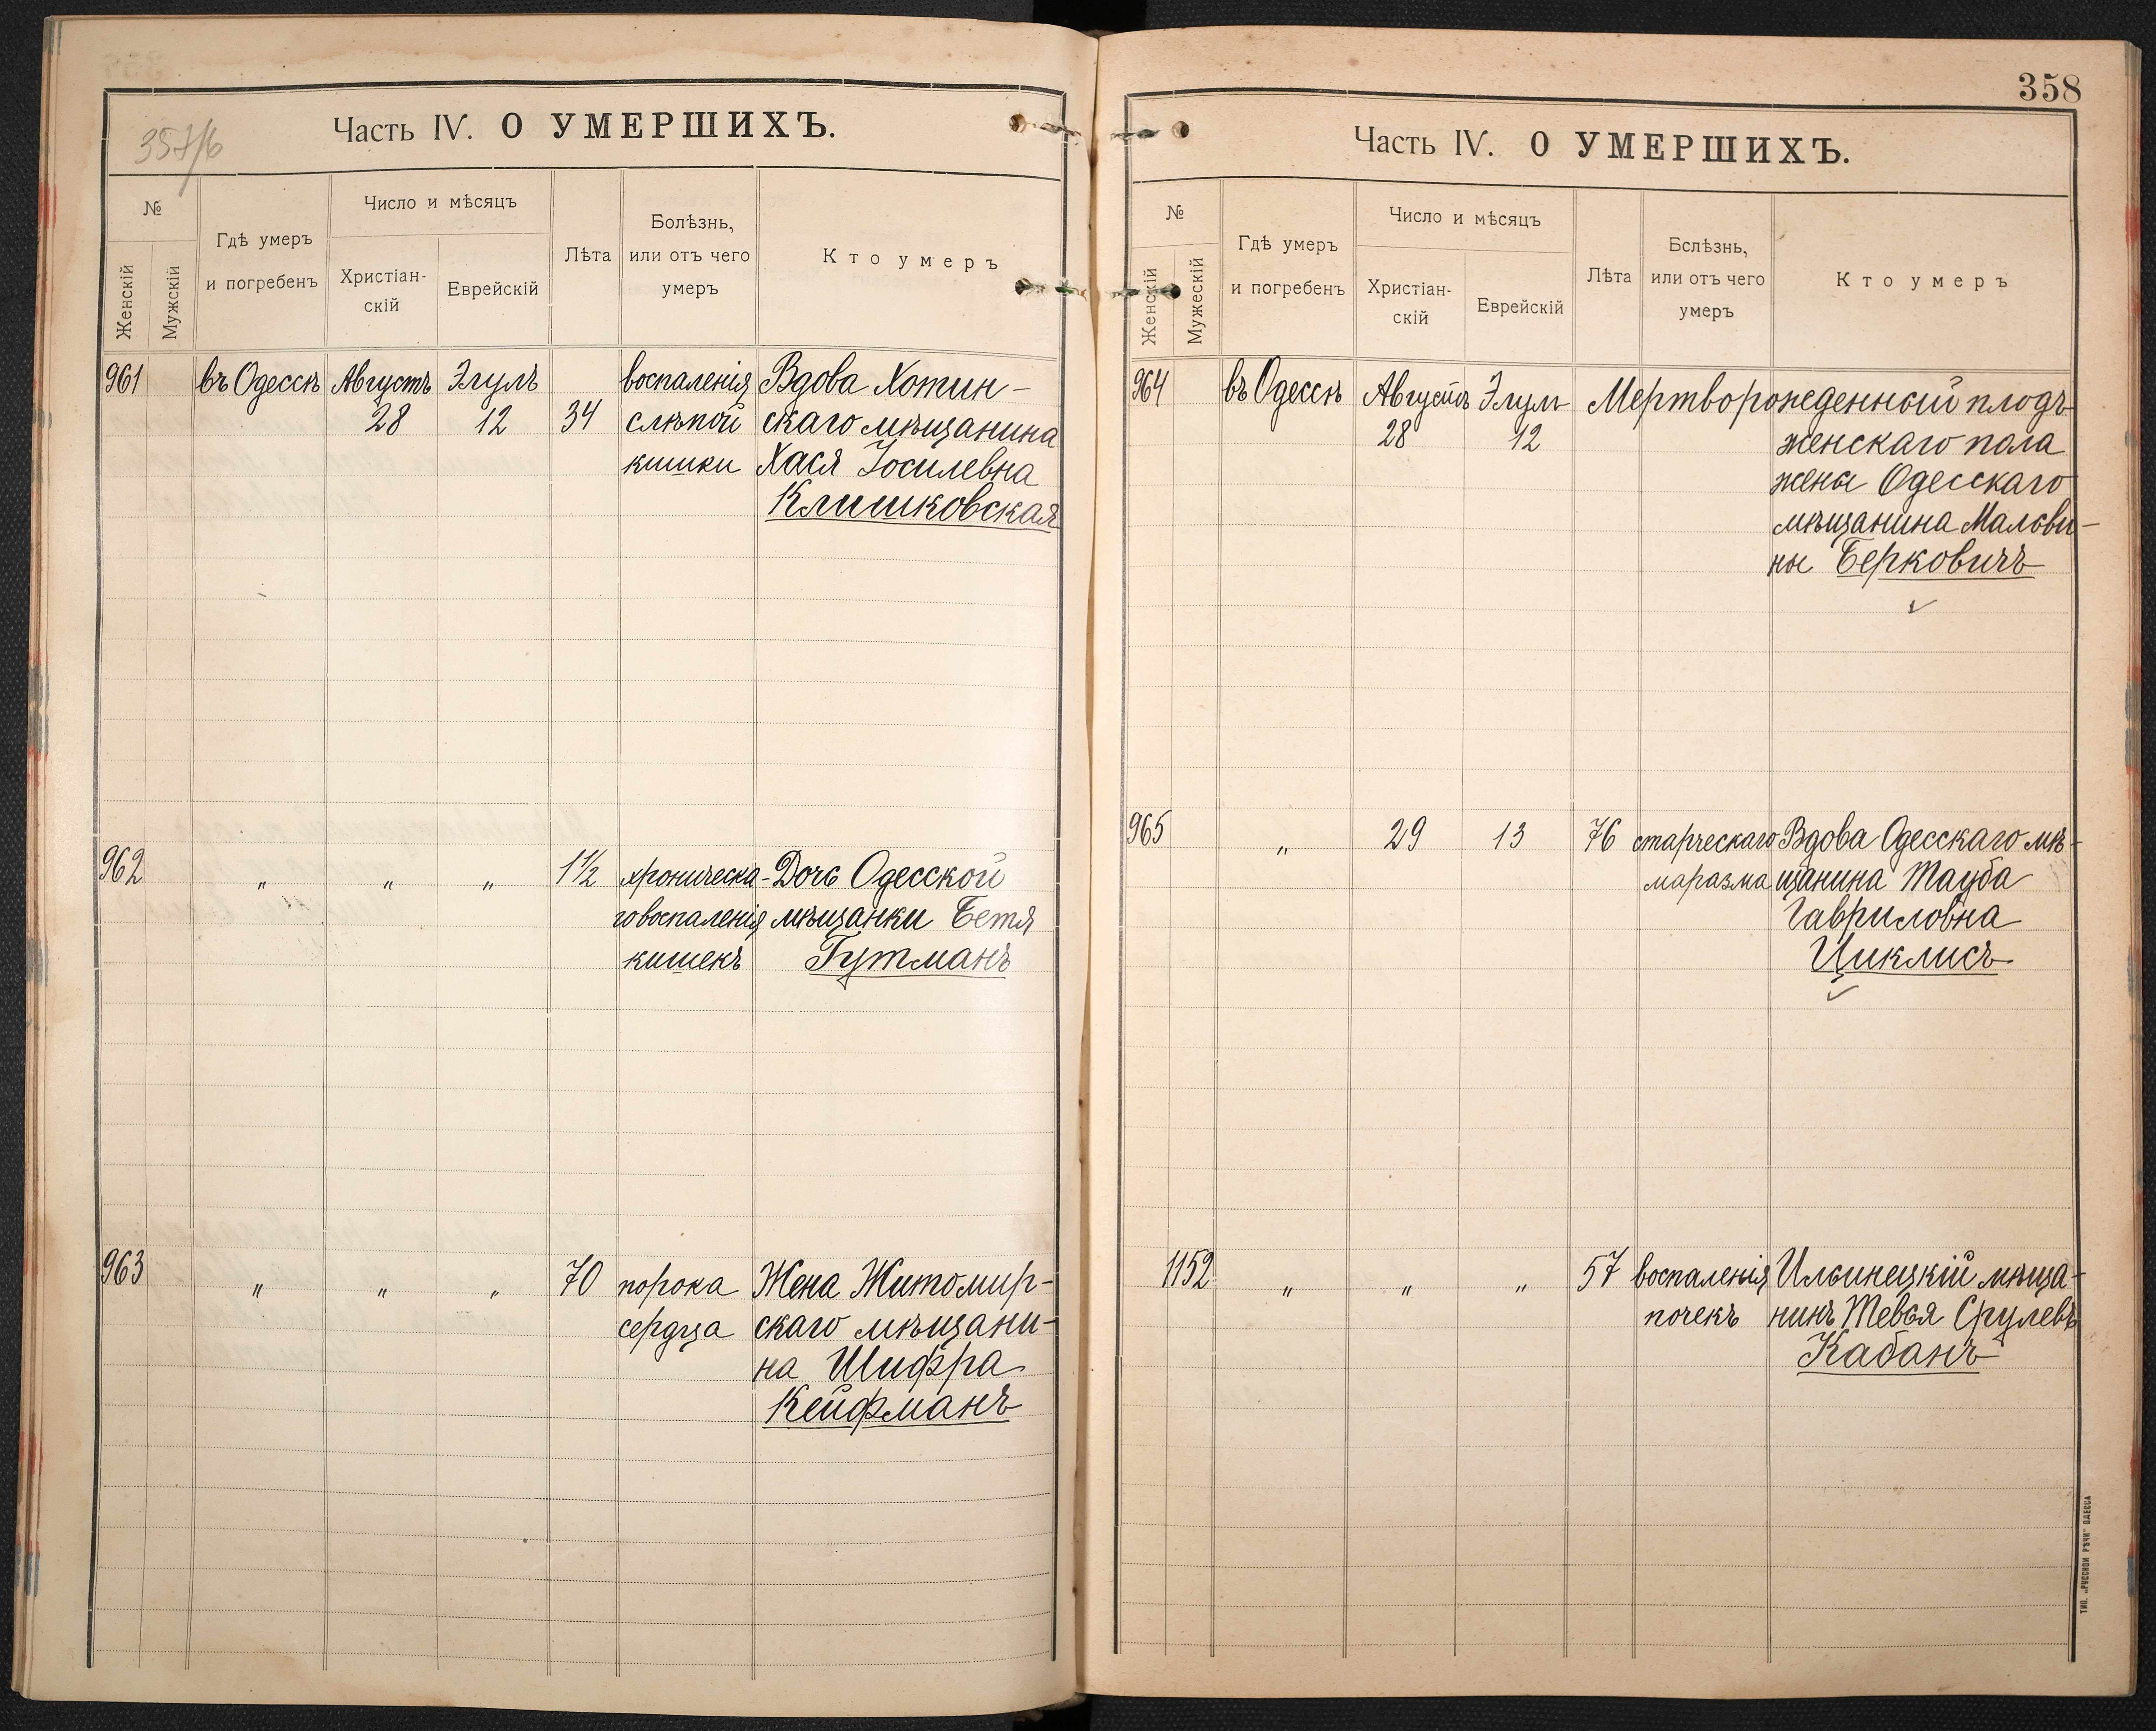 357/б
Часть IV. О УМЕРШИХЪ.
№
Женскій
Мужскій
Гдѣ умеръ
и погребенъ
Число и мѣсяцъ
Христіан-
скій
Еврейскій
Лѣта
Болѣзнь,
или отъ чего
умеръ
Кто умеръ
961 въ Одессѣ Августъ Элулъ воспаленія Вдова Хотин-
28 12 34 слѣпой скаго мѣщанина
кишки Хася Іосилевна
Клишковская
962 " " " 1½ хроническа- Дочь Одесской
го воспаленія мѣщанки Бетя
кишекъ Гутманъ
963 " " " 70 порока Жена Житомир-
сердца скаго мѣщани-
на Шифра
Кейфманъ
358
Часть IV. О УМЕРШИХЪ.
№
Женскій
Мужескій
Гдѣ умеръ
и погребенъ
Число и мѣсяцъ
Христіан-
скій
Еврейскій
Лѣта
Бслѣзнь,
или отъ чего
умеръ
Кто умеръ
964 въ Одессѣ Августъ Элулъ Мертворожденный плодъ
28 12 женскаго пола
жены Одесскаго
мѣщанина Малви-
ны Берковичъ
965 " 29 13 76 старческаго Вдова Одесскаго мѣ-
маразма щанина Тауба
Гавриловна
Циклисъ
1152 " " " 57 воспаленія Ильинецкій мѣща-
почекъ нинъ Тевья Срулевъ
Кабанъ
ТИП. „РУССКОЙ РѢЧИ" ОДЕССА